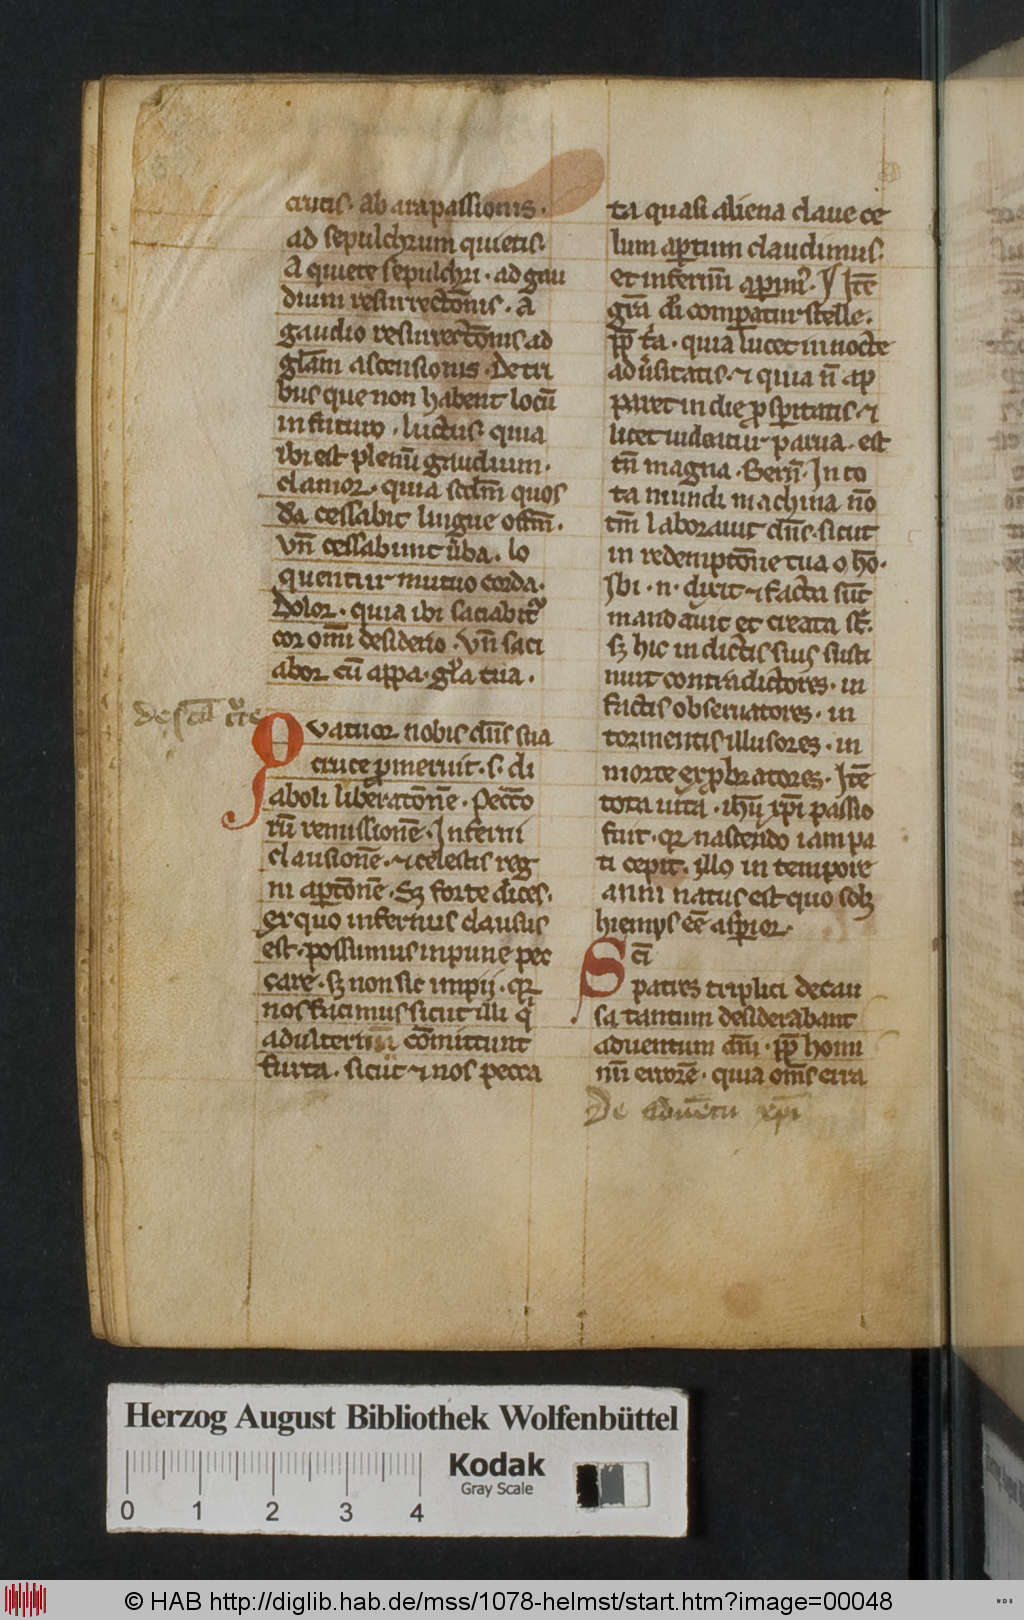 crucis. Ab ara passionis.
ad sepulchrum quietis.
A quiete sepulchri. ad gau
dium resurrect̄onis. A
gaudio resurrect̄onis ad
gl̄am ascensionis. De tri
bus que non habent locū
in futuro. luctus. quia
ibi est plenū gaudium.
clamor. quia scdm̄ quos
dā cessabit lingue off̄m.
vn̄ cessabunt v̄ba. lo
quentur mutuo corda.
Dolor. quia ibi saciabit᷒
cor om̄i desiderio. vn̄ saci
abor cū appa. gl̄a tua.
de scā cͬce
Quatuor nobis dn̄s sua
cruce ꝓmeruit. s. di
aboli liberatōnē. Pecc̄o
rū remissionē. Inferni
clausionē. ⁊ celestis reg
ni aꝑtōnē. Sꝫ forte dices.
ex quo infernus clausus
est. possumus inpune pec
care. sꝫ non sic impij. qr
nos facimus sicut illi qͥ
adulterium̄ cōmittunt
furta. sicut ⁊ nos pecca
ta quasi aliena claue ce
lum aꝑtum claudimus.
et infernū aꝑim᷒. Itē
gr̄a dī comꝑatur stelle.
ꝓpͭ tͥa. quia lucet in nocte
adv̄sitatis. ⁊ quia n̄ ap
paret in die ꝓsꝑitatis. ⁊
licet uideatur parua. est
tn̄ magna. Bern̄. In to
ta mundi machina nō
tm̄ laborauit dn̄s. sicut
in redemptōne tua o hō.
Ibi. n. dixit ⁊ facta sūt
mandauit et creata st̄.
sꝫ hic in dictis suis susti
nuit contradictores. in
factis obseruatores. in
tormentis illusores. in
morte exꝓbratores. Itē
tota uita. ih̄u xp̄i passio
fuit. qr nascendo iam pa
ti cepit. illo in tempore
anni natus est quo solꝫ
hiemps eē asꝑior.
Scī
patres triplici de cau
sa tantum desiderabant
aduentum dn̄i. ꝓpͭ homi
nū errorē. quia om̄s erra
De aduētu xp̄i
Herzog August Bibliothek Wolfenbüttel
Kodak
Gray Scale
0 1 2 3 4
© HAB http://diglib.hab.de/mss/1078-helmst/start.htm?image=00048